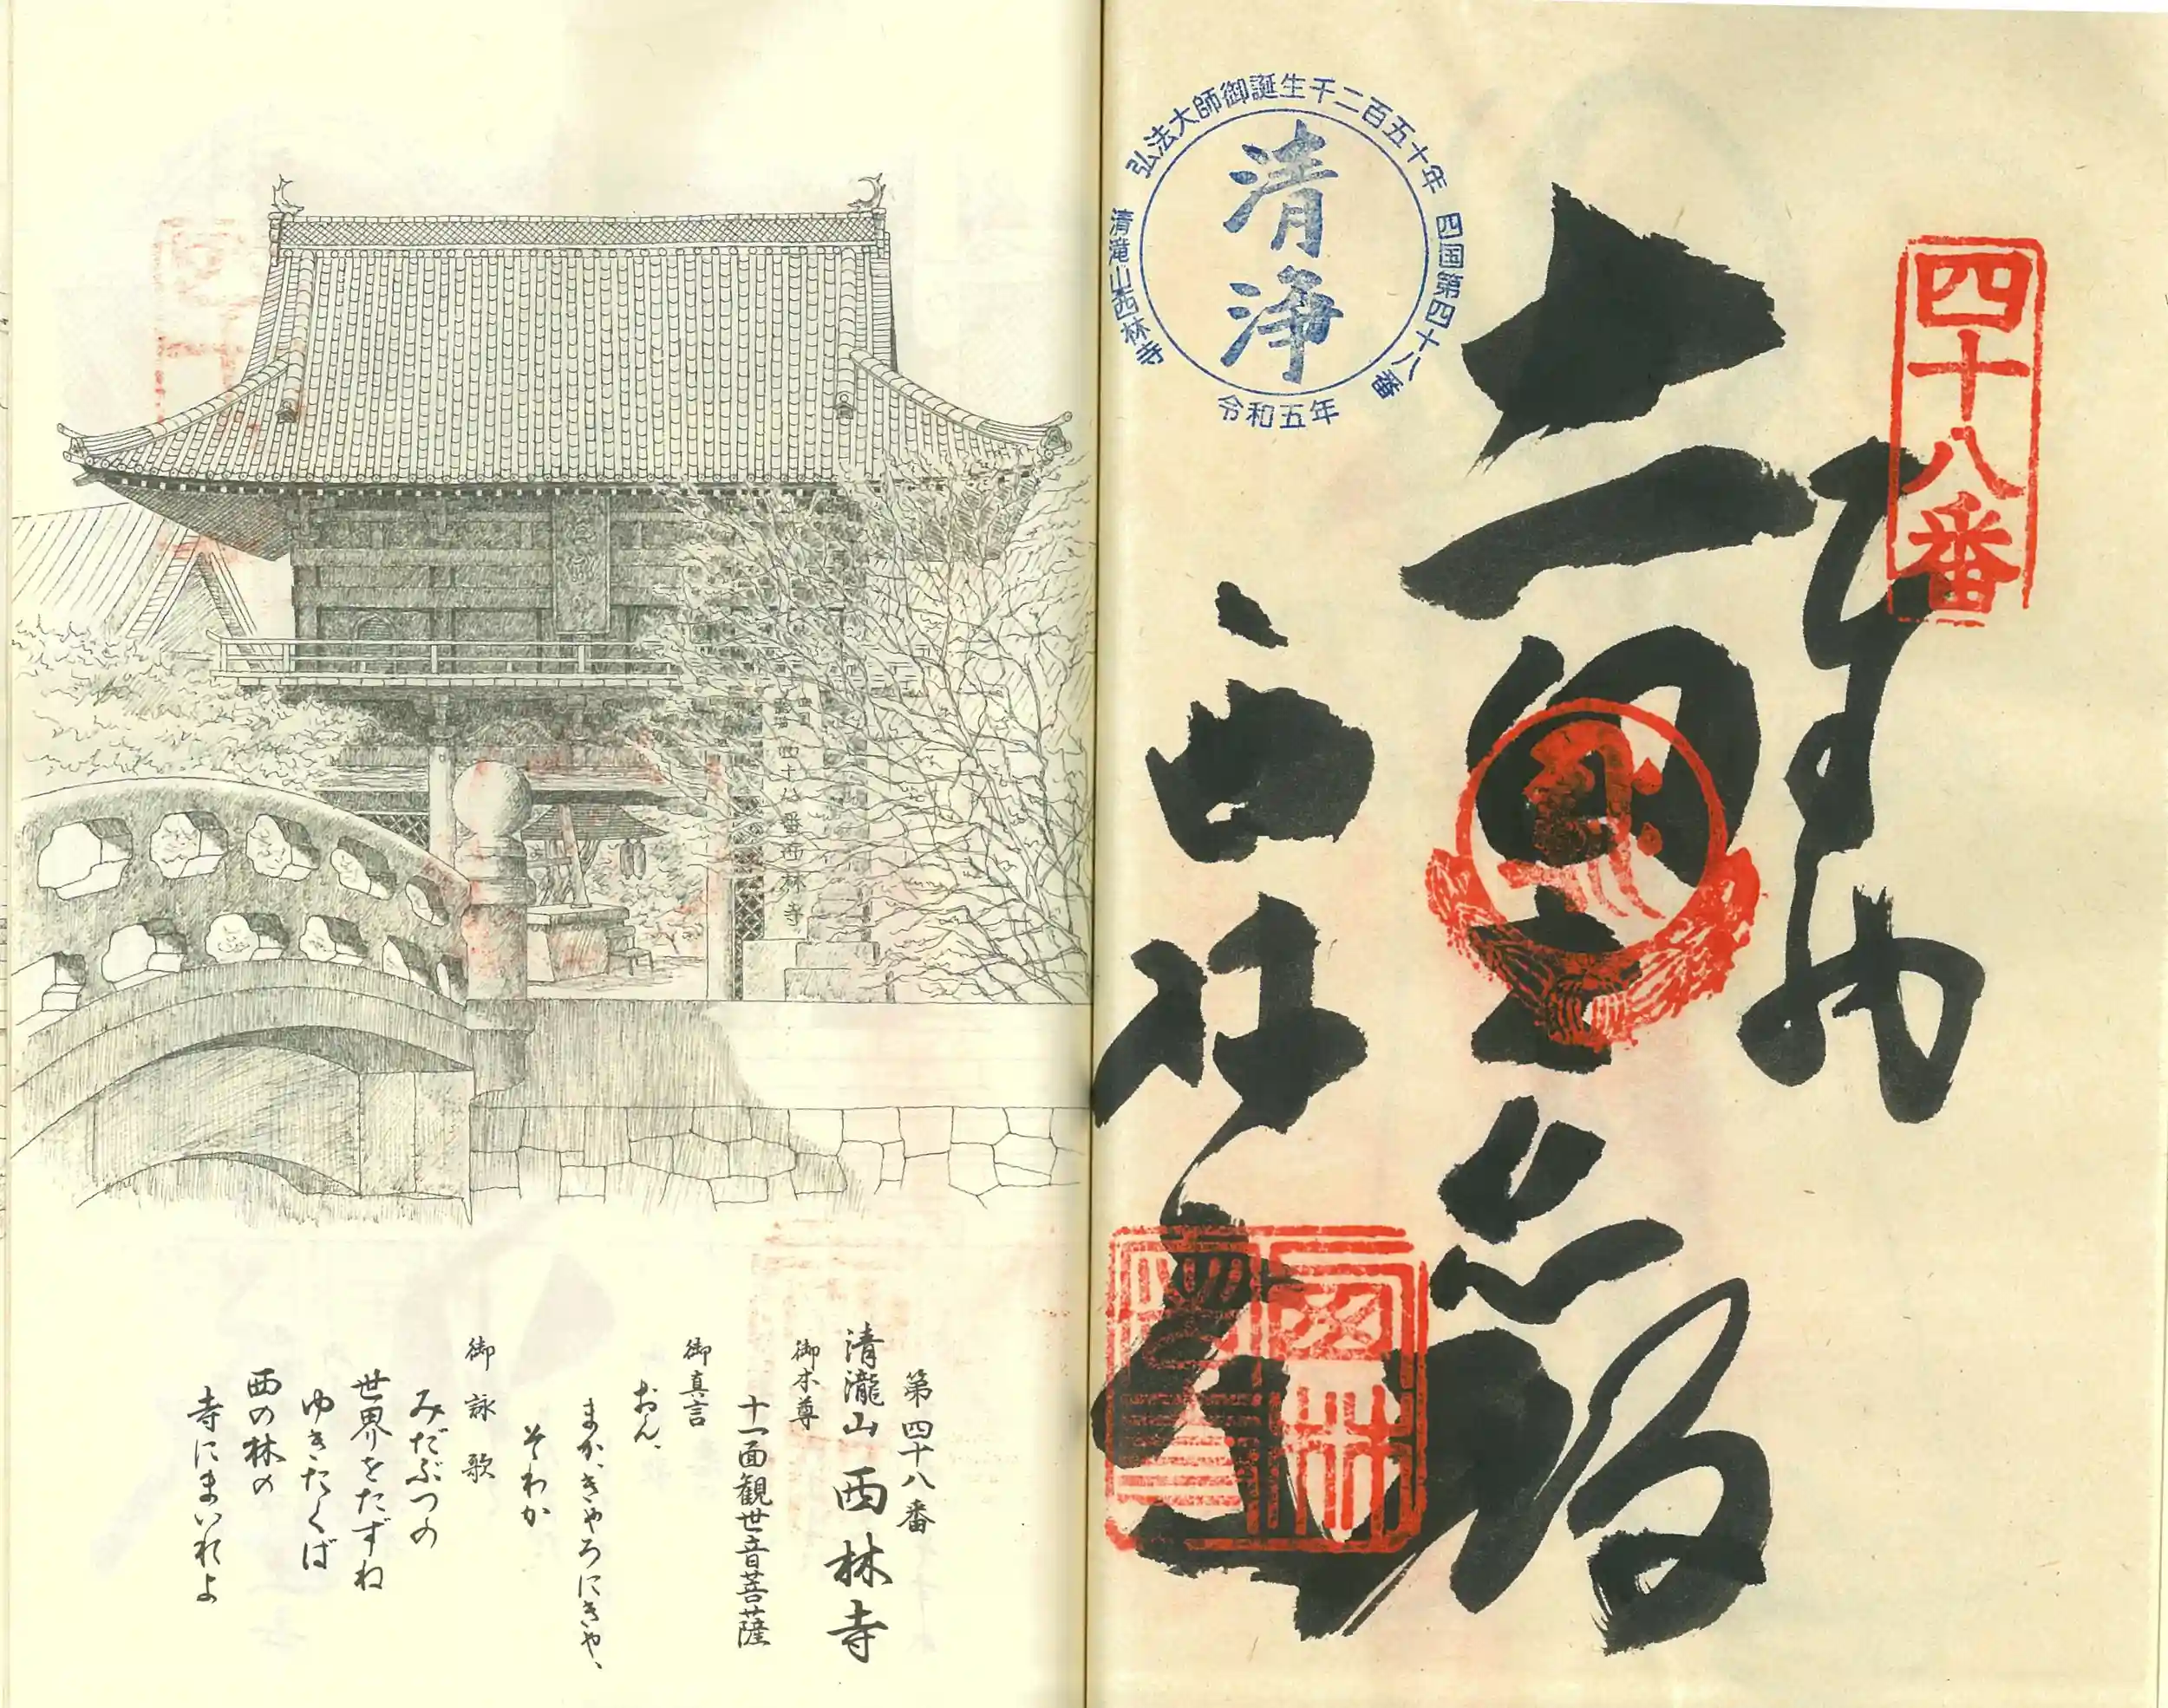 四十八番
奉納
西林寺
弘法大師御誕生千二百五十年
四国第四十八番
清滝山西林寺
令和五年
清浄
四十八番西林寺
第四十八番
清瀧山 西林寺
御本尊
十一面観世音菩薩
御真言
おん、
まか、きゃろにきゃ、
そわか
御詠歌
みだぶつの
世界をたずね
ゆきたくば
西の林の
寺にまいれよ